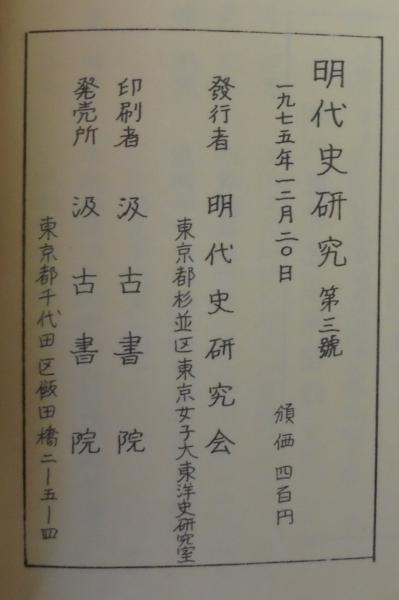 明代史研究 第三號
一九七五年一二月二〇日 頒価 四百円
發行者 明代史研究会
東京都杉並区東京女子大東洋史研究室
印刷者 汲古書院
発売所 汲古書院
東京都千代田区飯田橋二ー五ー四